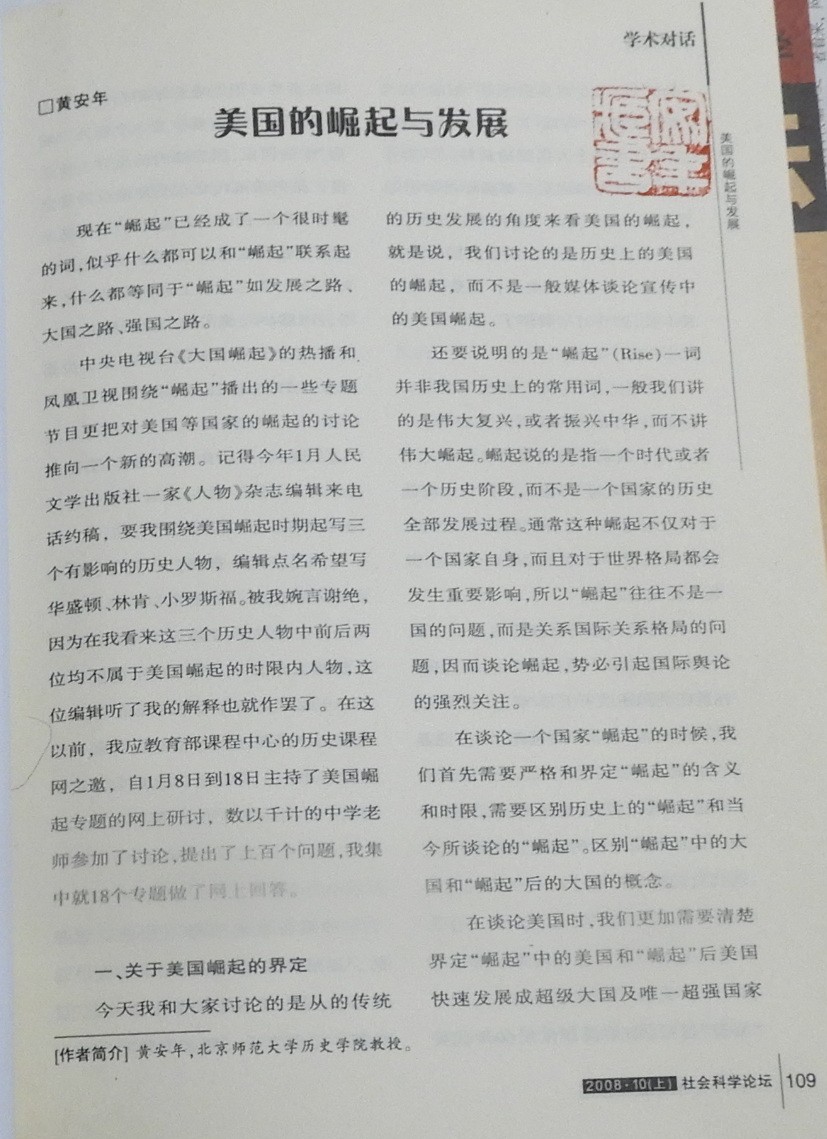 学术对话
□黄安年
美国的崛起与发展
美国的崛起与发展
现在“崛起”已经成了一个很时髦
的词,似乎什么都可以和“崛起”联系起
来,什么都等同于“崛起”如发展之路、
大国之路、强国之路。
中央电视台《大国崛起》的热播和
凤凰卫视围绕“崛起”播出的一些专题
节目更把对美国等国家的崛起的讨论
推向一个新的高潮。记得今年1月人民
文学出版社一家《人物》杂志编辑来电
话约稿，要我围绕美国崛起时期起写三
个有影响的历史人物，编辑点名希望写
华盛顿、林肯、小罗斯福。被我婉言谢绝,
因为在我看来这三个历史人物中前后两
位均不属于美国崛起的时限内人物,这
位编辑听了我的解释也就作罢了。在这
以前，我应教育部课程中心的历史课程
网之邀，自1月8日到18日主持了美国崛
起专题的网上研讨，数以千计的中学老
师参加了讨论,提出了上百个问题,我集
中就18个专题做了网上回答。
一、关于美国崛起的界定
今天我和大家讨论的是从的传统
的历史发展的角度来看美国的崛起，
就是说，我们讨论的是历史上的美国
的崛起，而不是一般媒体谈论宣传中
的美国崛起。
还要说明的是“崛起”(Rise)一词
并非我国历史上的常用词,一般我们讲
的是伟大复兴,或者振兴中华,而不讲
伟大崛起。崛起说的是指一个时代或者
一个历史阶段,而不是一个国家的历史
全部发展过程。通常这种崛起不仅对于
一个国家自身,而且对于世界格局都会
发生重要影响,所以“崛起”往往不是一
国的问题,而是关系国际关系格局的问
题,因而谈论崛起,势必引起国际舆论
的强烈关注。
在谈论一个国家“崛起”的时候,我
们首先需要严格和界定“崛起”的含义
和时限,需要区别历史上的“崛起”和当
今所谈论的“崛起”。区别“崛起”中的大
国和“崛起”后的大国的概念。
在谈论美国时,我们更加需要清楚
界定“崛起”中的美国和“崛起”后美国
快速发展成超级大国及唯一超强国家
[作者简介] 黄安年,北京师范大学历史学院教授。
2008·10(上) 社会科学论坛 109